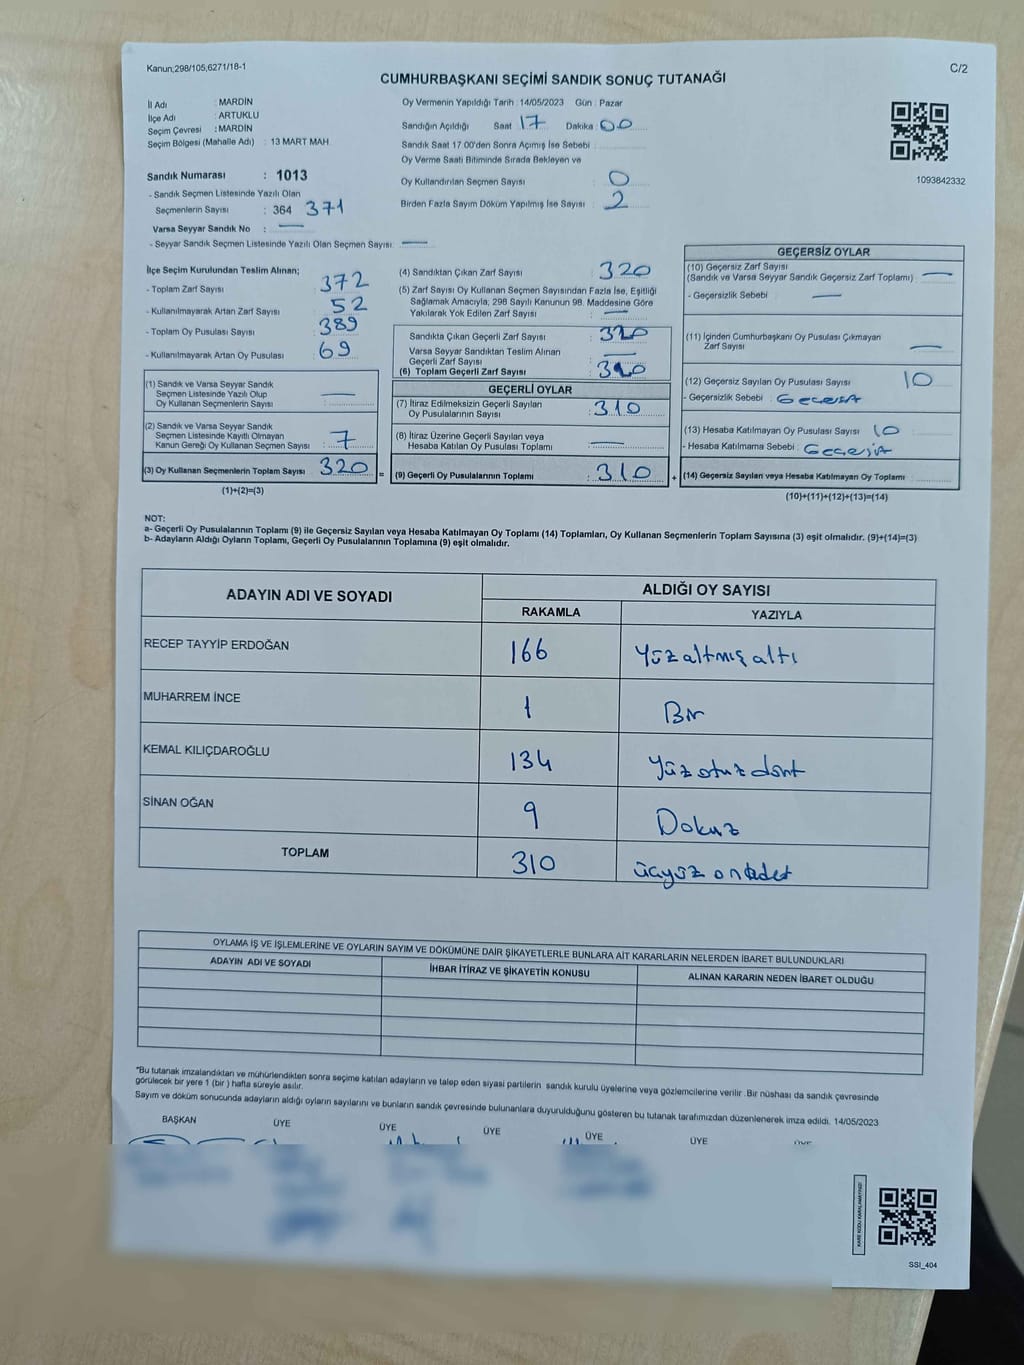 Kanun;298/105,6271/18-1
C/2
CUMHURBAŞKANI SEÇİMİ SANDIK SONUÇ TUTANAĞI
İl Adı : MARDİN
İlçe Adı : ARTUKLU
Seçim Çevresi : MARDİN
Seçim Bölgesi (Mahalle Adı) : 13 MART MAH.
Sandık Numarası : 1013
- Sandık Seçmen Listesinde Yazılı Olan
Seçmenlerin Sayısı : 364 371
Varsa Seyyar Sandık No : —
- Seyyar Sandık Seçmen Listesinde Yazılı Olan Seçmen Sayısı: —
Oy Vermenin Yapıldığı Tarih : 14/05/2023 Gün : Pazar
Sandığın Açıldığı Saat 17 Dakika 00
Sandık Saat 17.00'den Sonra Açımış İse Sebebi :
Oy Verme Saati Bitiminde Sırada Bekleyen ve
Oy Kullandırılan Seçmen Sayısı : 0
Birden Fazla Sayım Döküm Yapılmış İse Sayısı : 2
1093842332
İlçe Seçim Kurulundan Teslim Alınan;
- Toplam Zarf Sayısı : 372
- Kullanılmayarak Artan Zarf Sayısı : 52
- Toplam Oy Pusulası Sayısı : 389
- Kullanılmayarak Artan Oy Pusulası : 69
(1) Sandık ve Varsa Seyyar Sandık
Seçmen Listesinde Yazılı Olup
Oy Kullanan Seçmenlerin Sayısı : —
(2) Sandık ve Varsa Seyyar Sandık
Seçmen Listesinde Kayıtlı Olmayan
Kanun Gereği Oy Kullanan Seçmen Sayısı : 7
(3) Oy Kullanan Seçmenlerin Toplam Sayısı : 320
(1)+(2)=(3)
(4) Sandıktan Çıkan Zarf Sayısı : 320
(5) Zarf Sayısı Oy Kullanan Seçmen Sayısından Fazla İse, Eşitliği
Sağlamak Amacıyla; 298 Sayılı Kanunun 98. Maddesine Göre
Yakılarak Yok Edilen Zarf Sayısı : —
Sandıkta Çıkan Geçerli Zarf Sayısı : 320
Varsa Seyyar Sandıktan Teslim Alınan
Geçerli Zarf Sayısı : —
(6) Toplam Geçerli Zarf Sayısı :
GEÇERLİ OYLAR
(7) İtiraz Edilmeksizin Geçerli Sayılan
Oy Pusulalarının Sayısı : 310
(8) İtiraz Üzerine Geçerli Sayılan veya
Hesaba Katılan Oy Pusulası Toplamı : —
(9) Geçerli Oy Pusulalarının Toplamı : 310
GEÇERSİZ OYLAR
(10) Geçersiz Zarf Sayısı
(Sandık ve Varsa Seyyar Sandık Geçersiz Zarf Toplamı) : —
- Geçersizlik Sebebi : —
(11) İçinden Cumhurbaşkanı Oy Pusulası Çıkmayan
Zarf Sayısı : —
(12) Geçersiz Sayılan Oy Pusulası Sayısı : 10
- Geçersizlik Sebebi :
(13) Hesaba Katılmayan Oy Pusulası Sayısı : 10
- Hesaba Katılmama Sebebi :
+ (14) Geçersiz Sayılan veya Hesaba Katılmayan Oy Toplamı :
(10)+(11)+(12)+(13)=(14)
NOT:
a- Geçerli Oy Pusulalarının Toplamı (9) ile Geçersiz Sayılan veya Hesaba Katılmayan Oy Toplamı (14) Toplamları, Oy Kullanan Seçmenlerin Toplam Sayısına (3) eşit olmalıdır. (9)+(14)=(3)
b- Adayların Aldığı Oyların Toplamı, Geçerli Oy Pusulalarının Toplamına (9) eşit olmalıdır.
ADAYIN ADI VE SOYADI ALDIĞI OY SAYISI
RAKAMLA YAZIYLA
RECEP TAYYİP ERDOĞAN 166 Yüzaltmış altı
MUHARREM İNCE 1 Bir
KEMAL KILIÇDAROĞLU 134 Yüzotuzdört
SİNAN OĞAN 9 Dokuz
TOPLAM 310 üçyüz on adet
OYLAMA İŞ VE İŞLEMLERİNE VE OYLARIN SAYIM VE DÖKÜMÜNE DAİR ŞİKAYETLERLE BUNLARA AİT KARARLARIN NELERDEN İBARET BULUNDUKLARI
ADAYIN ADI VE SOYADI İHBAR İTİRAZ VE ŞİKAYETİN KONUSU ALINAN KARARIN NEDEN İBARET OLDUĞU
*Bu tutanak imzalandıktan ve mühürlendikten sonra seçime katılan adayların ve talep eden siyasi partilerin sandık kurulu üyelerine veya gözlemcilerine verilir .Bir nüshası da sandık çevresinde
görülecek bir yere 1 (bir ) hafta süreyle asılır.
Sayım ve döküm sonucunda adayların aldığı oyların sayılarını ve bunların sandık çevresinde bulunanlara duyurulduğunu gösteren bu tutanak tarafımızdan düzenlenerek imza edildi. 14/05/2023
BAŞKAN ÜYE ÜYE ÜYE ÜYE ÜYE ÜYE
KARE KODU KARALAMAYINIZ!
SSI_404